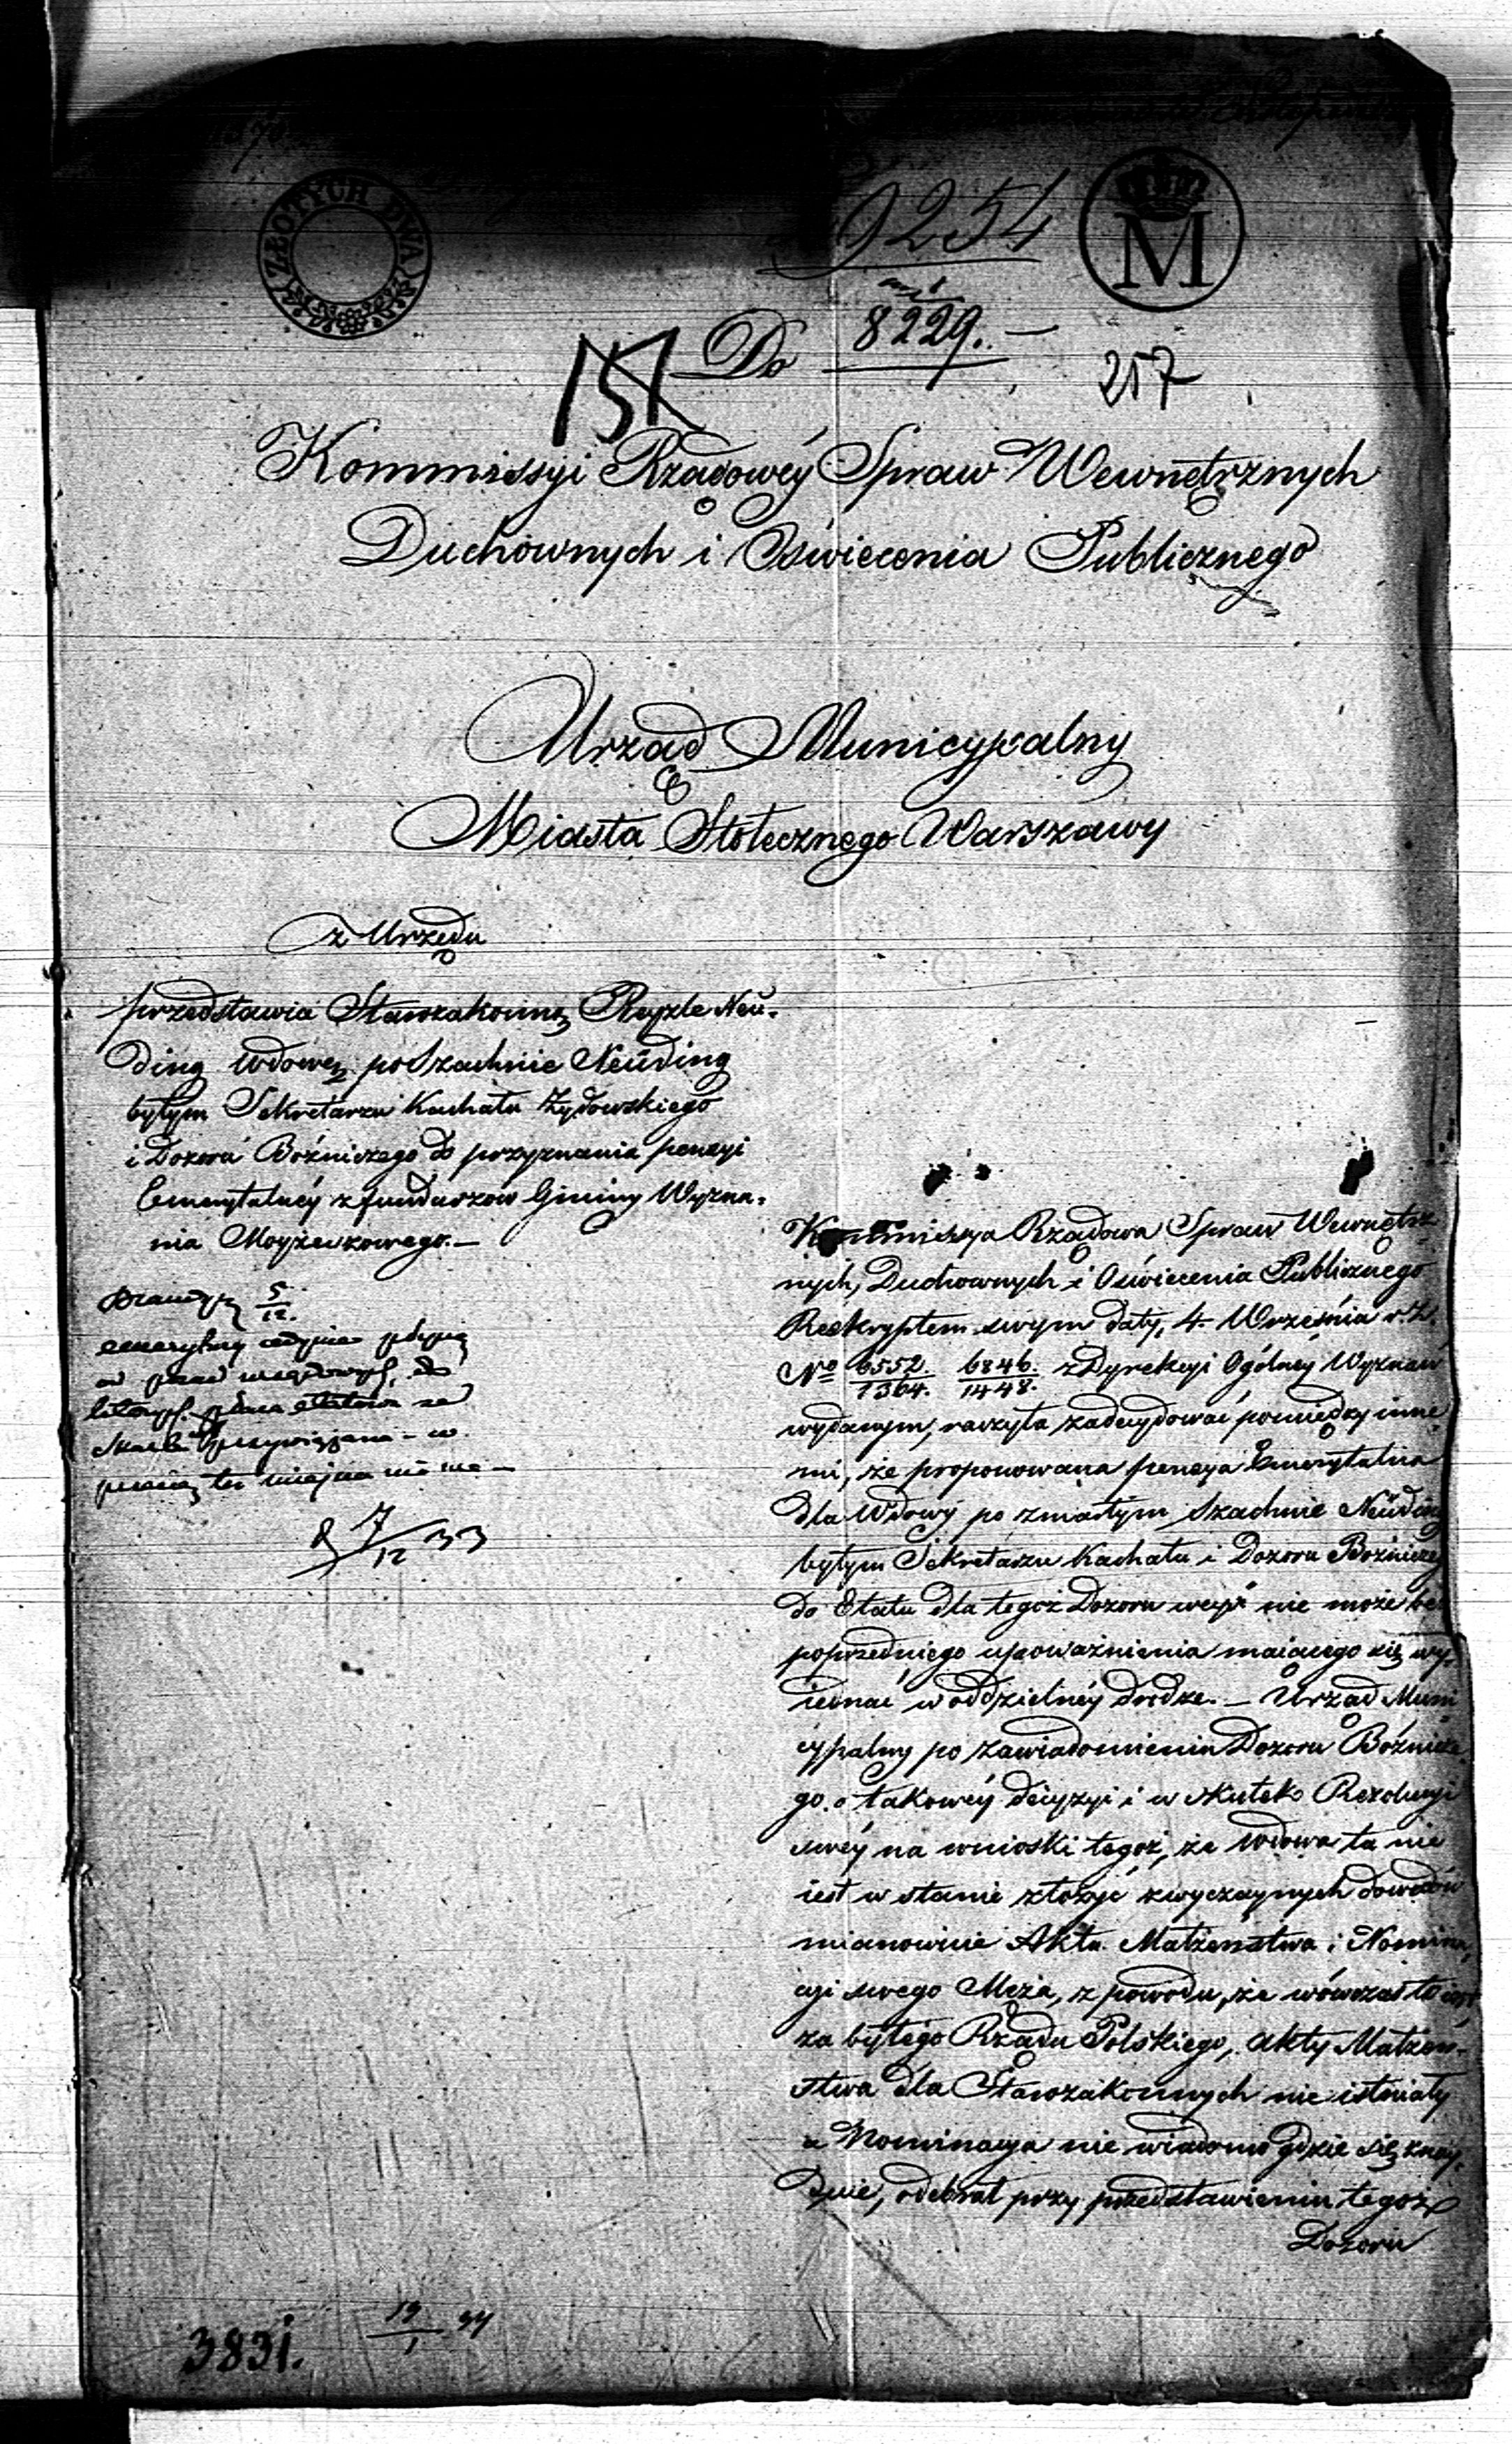 ZŁOTYCH DWA
9254
M
8229.
Do
257
151
Kommissyi Rządowéy Spraw Wewnętrznych
Duchownych i Oświecenia Publicznego
Urząd Municypalny
Miasta Stołecznego Warszawy
z Urzędu
przedstawia Starozakonną Rayzle Neu-
ding Wdowę po Szachnie Neuding
byłym Sekretarzu Kachału Żydowskiego
i Dozoru Bóżniczego do przyznania pensyi
Emerytalnéy z funduszow Gminy Wyzna-
nia Moyżeszowego.—
5/12.
emerytury płyną
od
płaca etatowa na
Skarb
ten miejsca nie ma —
7/12 33
Kommissya Rządowa Spraw Wewnętrz-
nych, Duchownych i Oświecenia Publicznego
Reskryptem swym daty, 4. Września r. z.
No 6552./1364. 6846./1448. z Dyrekcyi Ogólney Wyznań
wydanym, raczyła zadecydować pomiędzy inne-
mi, że proponowana pensya Emerytalna
dla Wdowy po zmarłym Szachnie Neuding
byłym Sekretarzu Kachału i Dozoru Bóżniczeg
do Etatu dla tegoż Dozoru weyść nie może bez
poprzedniego upoważnienia maiącego się wy-
iednać w oddzielnéy drodze. — Urząd Muni
cypalny po zawiadomieniu Dozoru Bóżnicze
go o takowéy decyzyi i w skutek Rezolucyi
swéy na wnioski tegoż, że Wdowa ta nie
iest w stanie złożyć zwyczaynych dowodów
mianowicie Aktu Małżeństwa i Nomina-
cyi swego Męża, z powodu, że wówczas to iest
za byłego Rządu Polskiego, akty Małżeń-
stwa dla Starozakonnych nie istniały
a Nominacya nie wiadomo gdzie się znay-
duie, odebrał przy przedstawieniu tegoż
Dozoru
3831.
19/1 34